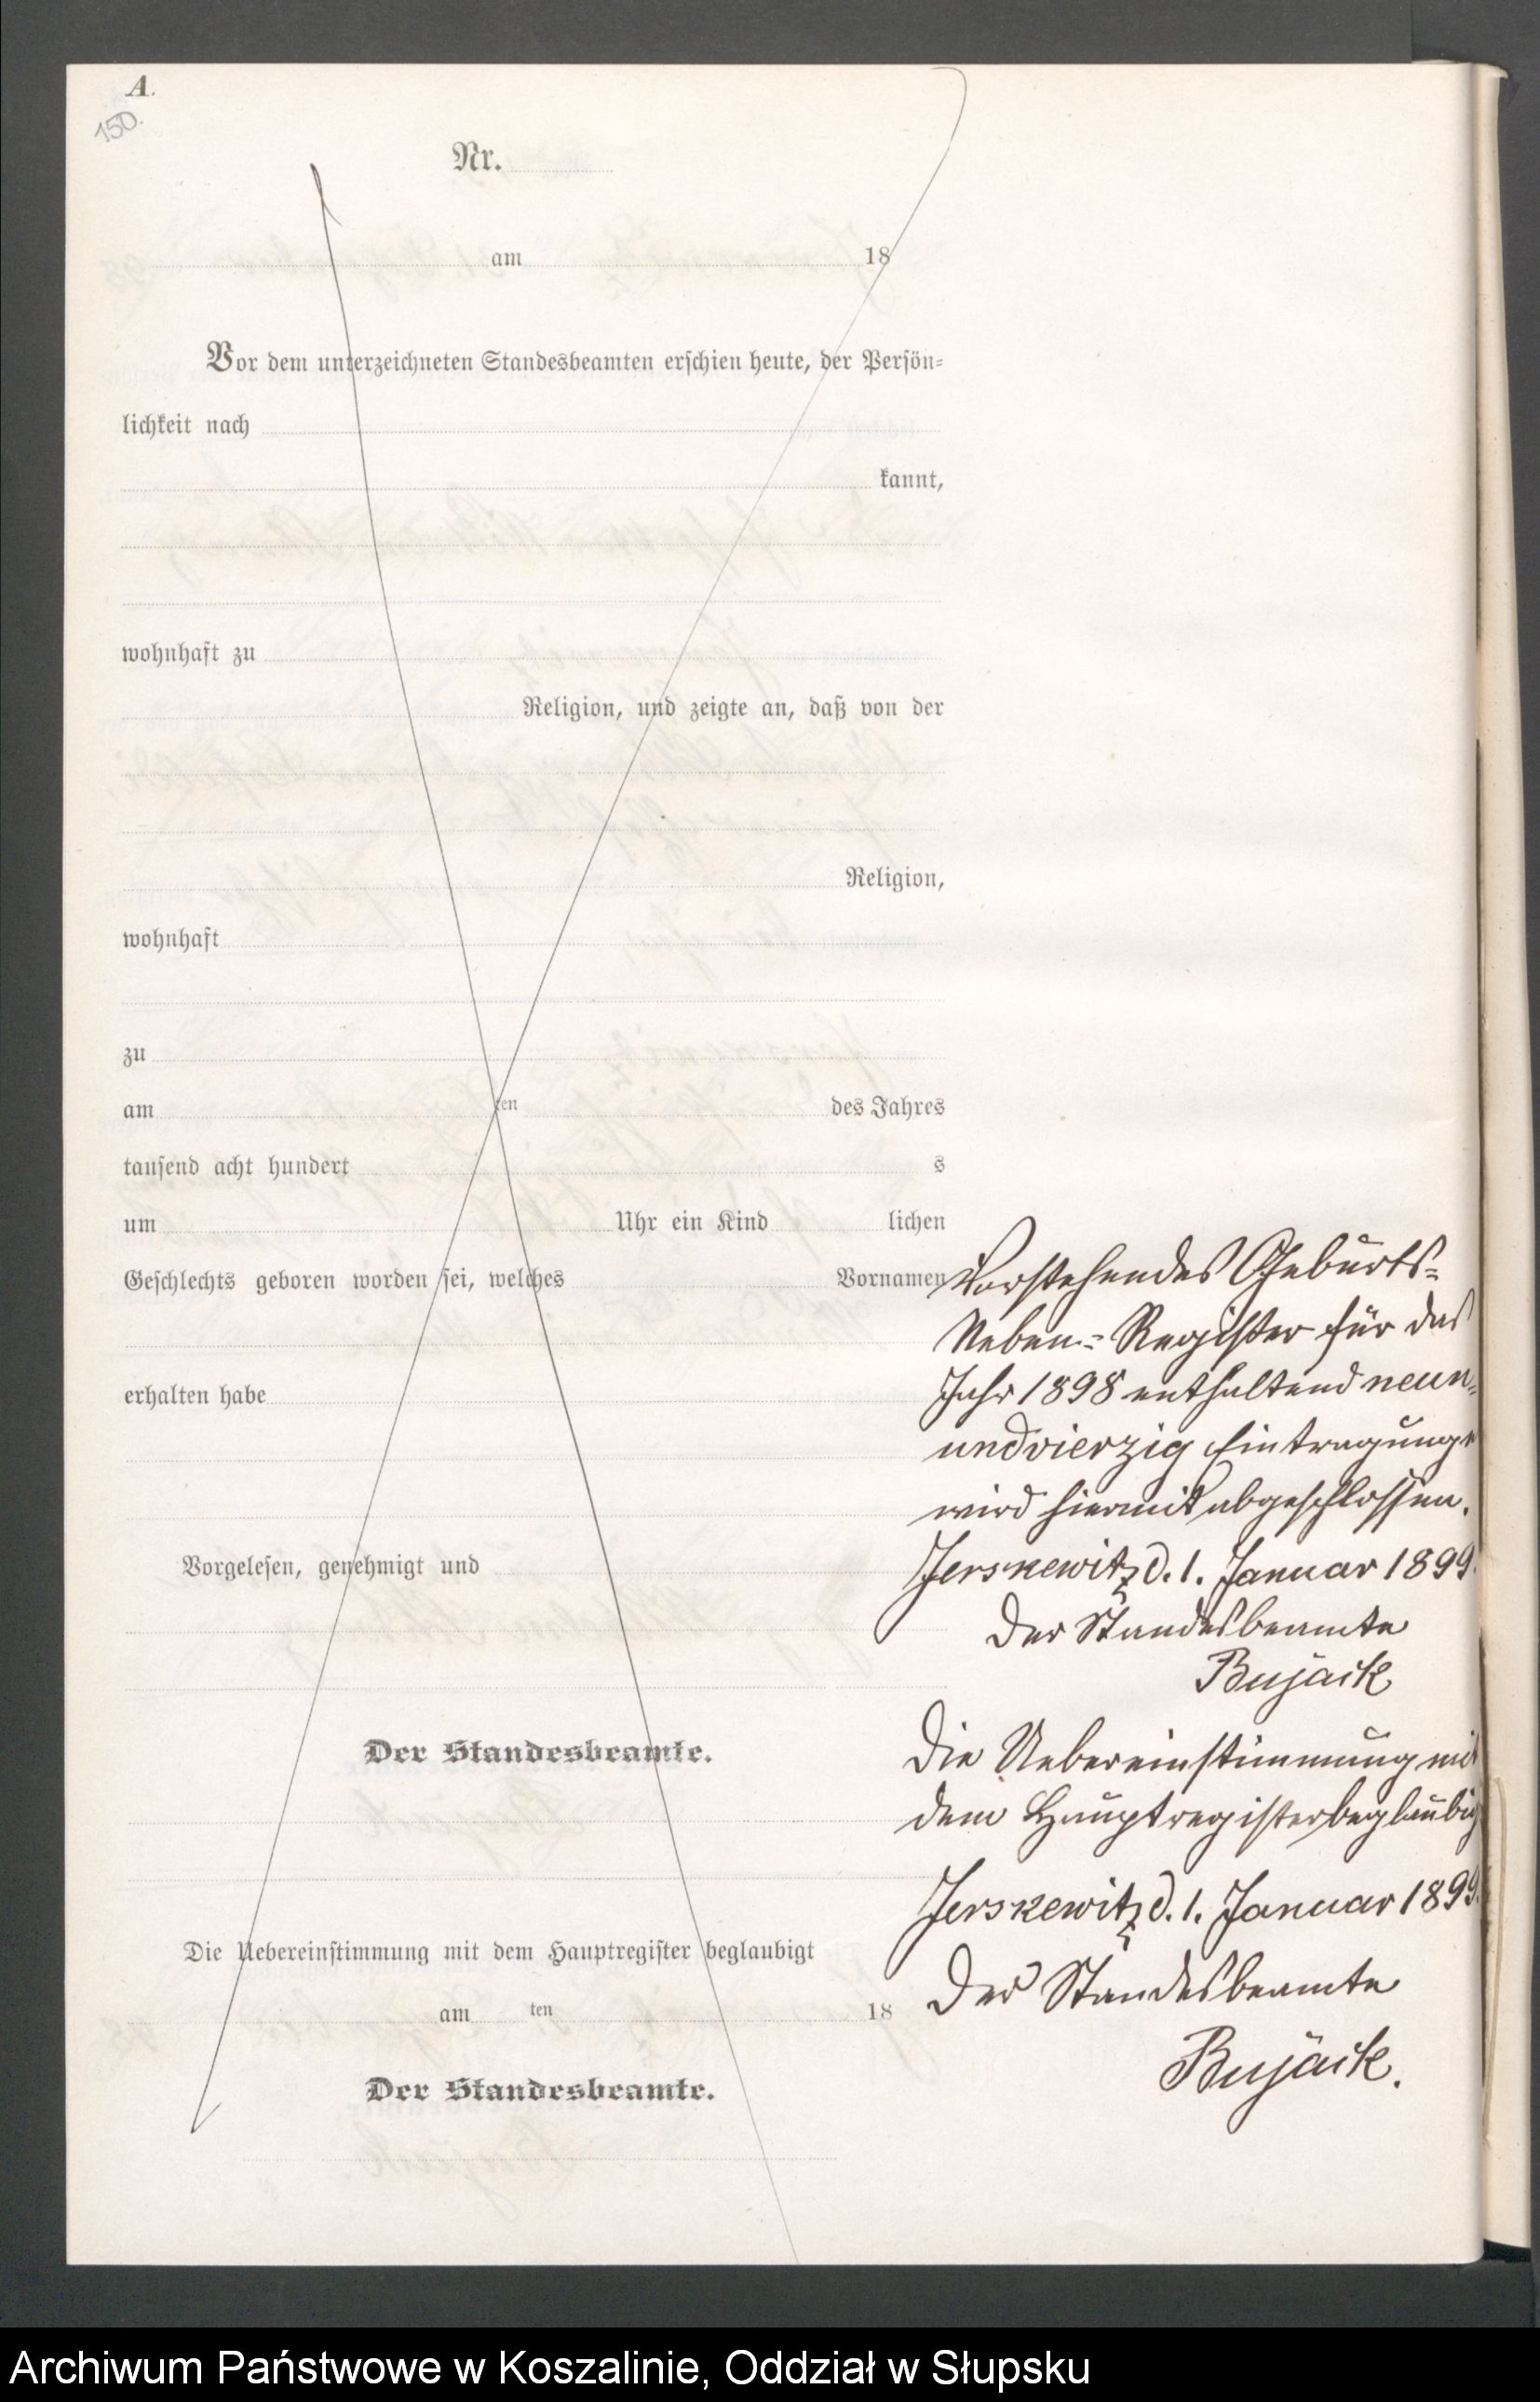 A.
150.
Nr.
am 18
Vor dem unterzeichneten Standesbeamten erschien heute, der Persön=
lichkeit nach
kannt,
wohnhaft zu
Religion, und zeigte an, daß von der
Religion,
wohnhaft
zu
am ten des Jahres
tausend acht hundert s
um Uhr ein Kind lichen
Geschlechts geboren worden sei, welches Vornamen
erhalten habe
Vorgelesen, genehmigt und
Der Standesbeamte.
Die Uebereinstimmung mit dem Hauptregister beglaubigt
am ten 18
Der Standesbeamte.
Vorstehendes Geburts=
Neben=Register für das
Jahr 1898 enthaltend neun=
undvierzig Eintragunge
wird hiermit abgeschlossen.
Jerskewitz d. 1. Januar 1899.
Der Standesbeamte
Bujack
Die Uebereinstimmung mit
dem Hauptregister beglaubig
Jerskewitz d. 1. Januar 1899.
Der Standesbeamte
Bujack.
Archiwum Państwowe w Koszalinie, Oddział w Słupsku